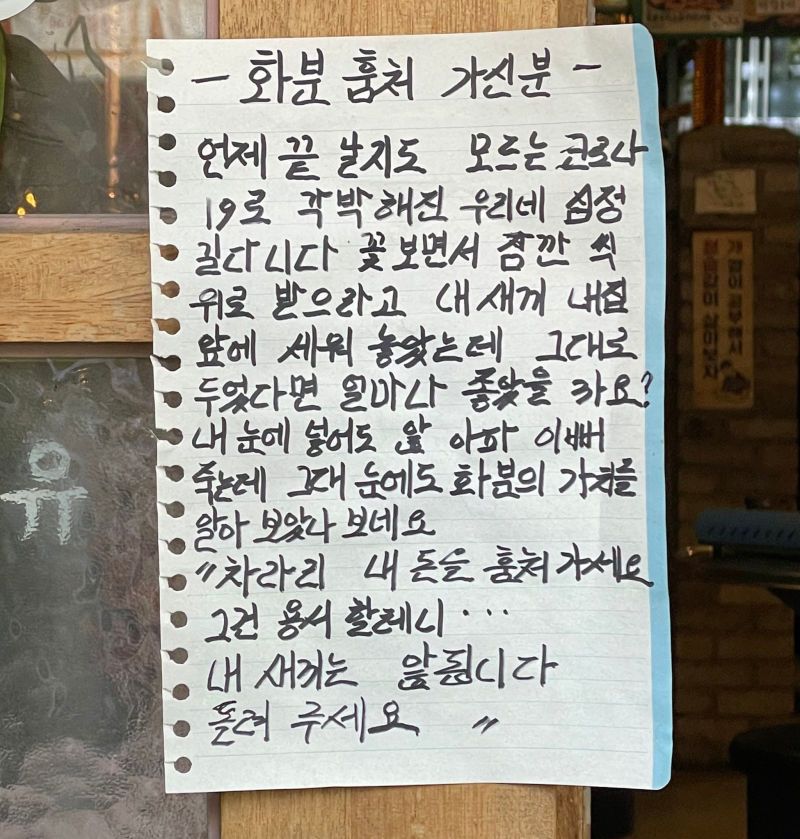 - 화분 훔처 가신분 -
언제 끝 날지도 모르는 코로나
19로 각박해진 우리네 심정
길다니다 꽃보면서 잠깐 씩
위로 받으라고 내새끼 내집
앞에 세워 놓았는데 그대로
두었다면 얼마나 좋았을 까요?
내 눈에 넣어도 안 아파 이뻐
죽는데 그대 눈에도 화분의 가치를
알아 보았나 보네요
"차라리 내 돈을 훔처가세요
그건 용서 할테니...
내 새끼는 안됩니다
돌려 주세요 "
유